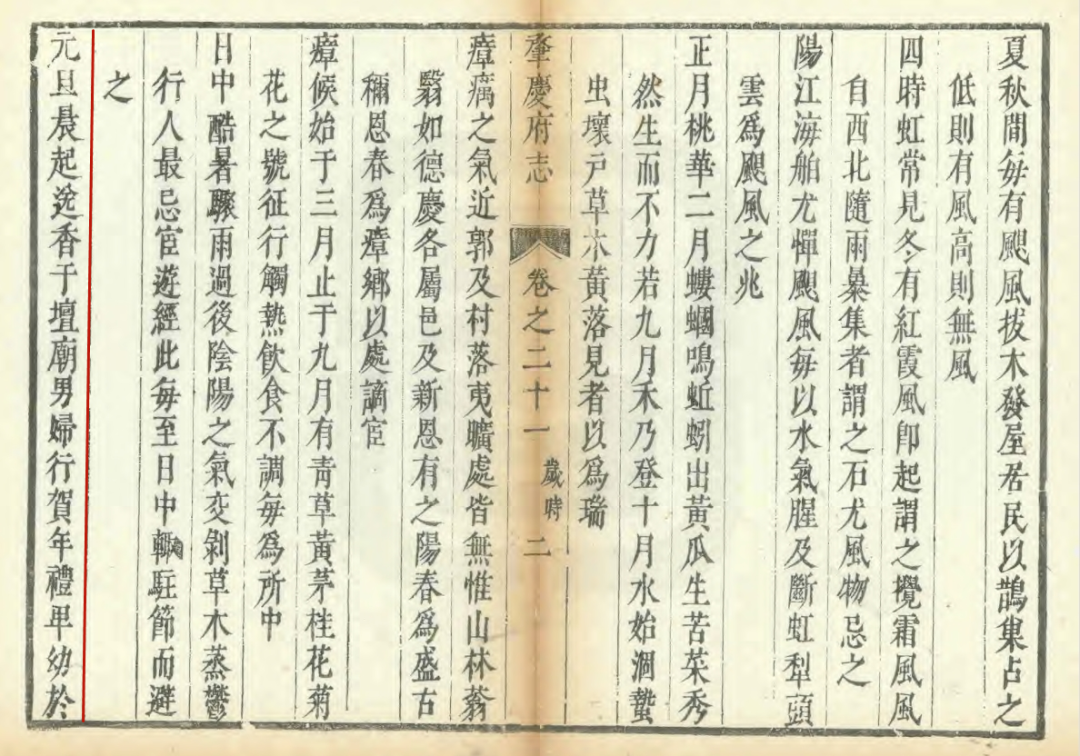 夏秋間每有颶風拔木發屋居民以鵲巢占之
低則有風高則無風
四時虹常見冬有紅霞風卽起謂之攪霜風風
自西北隨雨暴集者謂之石尤風物忌之
陽江海舶尤憚颶風每以水氣腥及斷虹犁頭
雲為颶風之兆
正月桃華二月螻蟈鳴蚯蚓出黃瓜生苦菜秀
然生而不力若九月禾乃登十月水始涸蟄
虫壞户草木黃落見者以為瑞
肇慶府志
卷之二十一
歲時
二
瘴癘之氣近郭及村落夷曠處皆無惟山林蓊
翳如德慶各屬邑及新恩有之陽春為盛古
稱恩春為瘴鄉以處謫宦
瘴候始于三月止于九月有靑草黃茅桂花菊
花之號征行觸熱飲食不調每為所中
日中酷暑驟雨過後陰陽之氣交剝草木蒸鬱
行人最忌宦遊經此每至日中輙駐節而避
之
元旦晨起逸香于壇廟男婦行賀年禮卑幼於